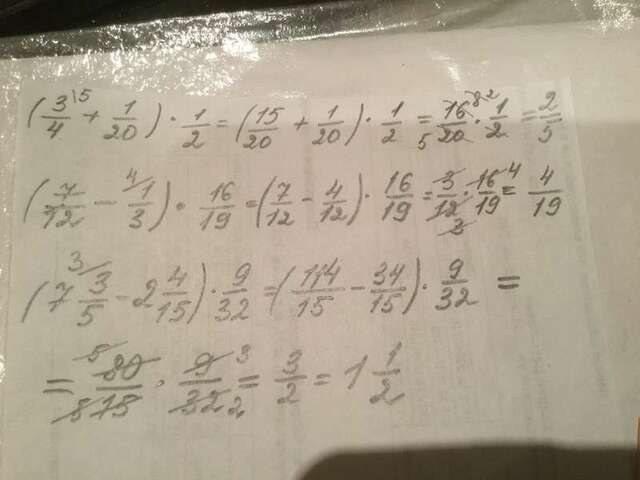 (3/4\5 + 1/20) · 1/2 = (15/20 + 1/20) · 1/2 = 16/20 · 1/2 = 2/5
(7/12 - 4/1/3) · 16/19 = (7/12 - 4/12) · 16/19 = 3/12 · 16/19 = 4/19
(7 3/5 - 2 4/15) · 9/32 = (114/15 - 34/15) · 9/32 =
= 80/15 · 9/32 = 3/2 = 1 1/2